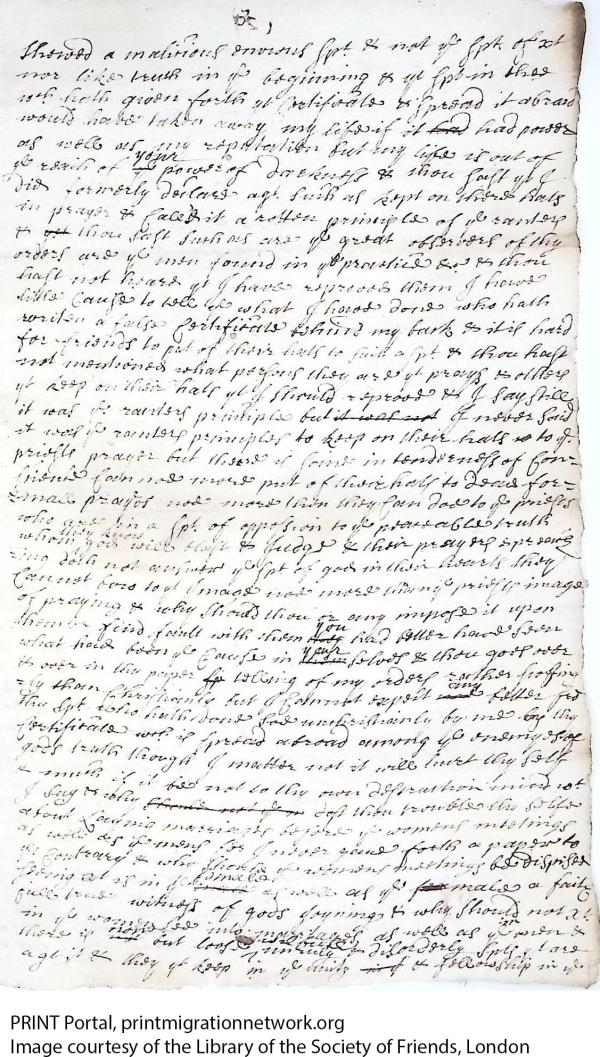 (3)
shewed a malicious envious spt & not ye spt of xt
nor like truth in ye beginning & yt spt in thee
wch hath given forth yt Certificate & spread it abraod
would have taken away my life if it had had power
as well as my reputation but my life is out of
ye reach of your power of darkness & thou sast yt I
did formerly declare agt such as kept on there hats
in prayer & caled it a rotten principle of ye ranters
& thou sast such as are ye great observers of thy
orders are ye men found in ye practice &c & thou
hast not heard yt I have reproved them I have
little Cause to tell ye what I have done who hath
writen a false Certificate behind my back & it is hard
for friends to put of their hats to such a spt & thou hast
not mentioned what persons they are yt prays & others
yt keep on their hats yt I should reprove & I say still
it was ye ranters principle but it was not I never said
it was ye ranters principles to keep on their hats to ye
priests prayer but there is some in tenderness of Con=
science Can noe more put of their hats to dead for=
mall prayes noe more then they Can doe to ye priests
who are in a spt of opposion to ye peaceable truth
whom they know god will blast & Judge & their prayers & preach
ing doth not answer ye spt of god in their hearts they
Cannot bow to yt Image noe more than ye priests image
of praying & why should thou or any impose it upon
them or find fault with them you had better have seen
what had been ye Cause in your selves & thou goes over
& over in thy paper telling of my orders rather scoffing
ly than Christianly but I Cannot expect any better from
thy spt who hath done soe unchristianly by me by thy
Certificate wch is spread abroad among ye enemyes of
gods truth though I matter not it will hurt thy self
& much if it be not to thy own destruction mind wt
I say & why should not ye w dost thou trouble thy selfe
about Laying marriages before ye womens meetings
as well as ye mens for I never gave forth a paper to
ye Contrary & why should ye womens meetings be dispised
seing xt is in ye female as well as ye male a faith
full true witness of gods joyning & why should not xt
in ye women see into marriages as well as ye men &
there is none but loose unruly & disorderly spts yt are
agt it & they yt keep in ye unity & fellowship in ye
PRINT Portal, printmigrationnetwork.org
Image courtesy of the Library of the Society of Friends, London